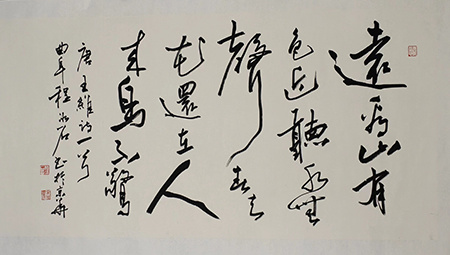 遠看山有
色近聽水無
聲春去
花還在人
来鳥不驚
唐王維詩一首
曲阜程石書於京華